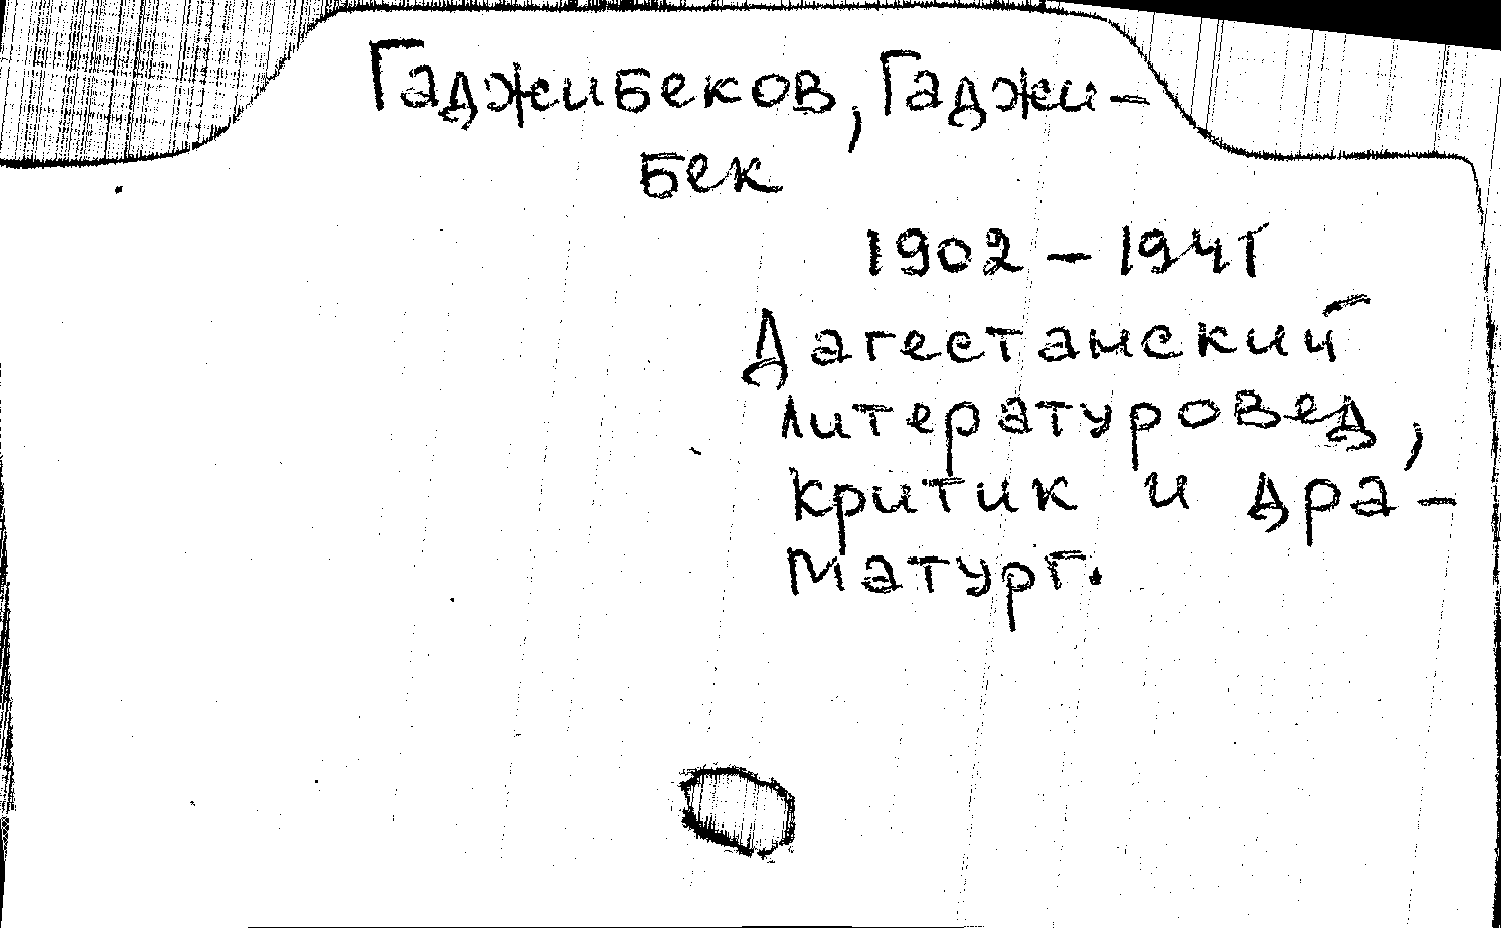 Гаджибеков, Гаджи-
бек
1902 - 1941
Дагестанский
литературовед,
критик и дра-
матург.